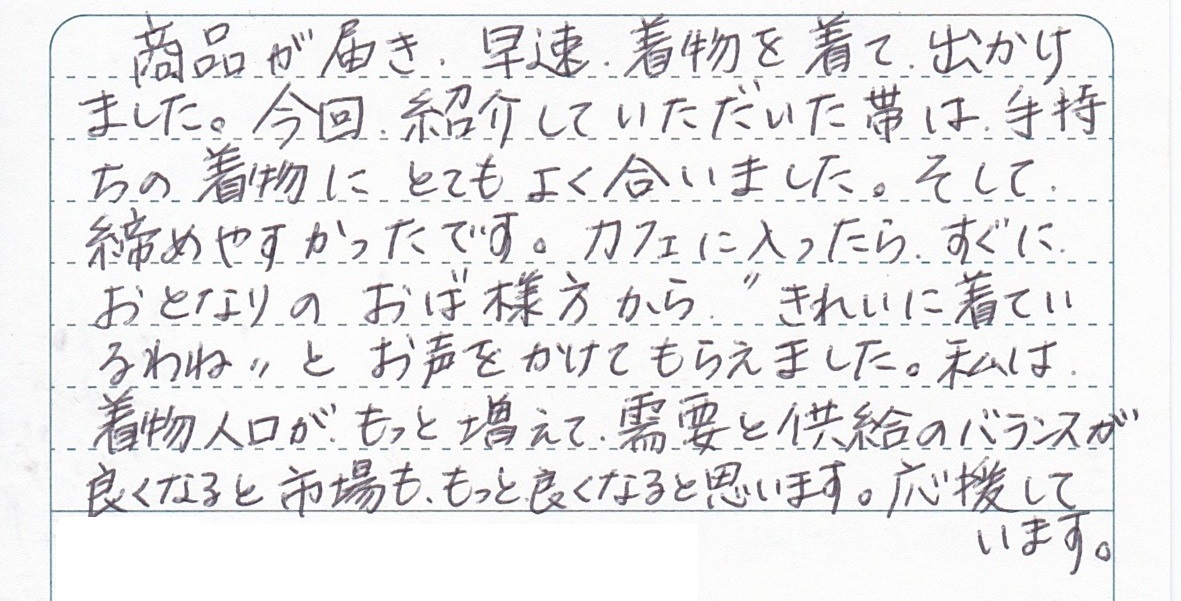 商品が届き、早速、着物を着て、出かけ
ました。今回、紹介していただいた帯は、手持
ちの着物にとてもよく合いました。そして、
締めやすかったです。カフェに入ったら、すぐに、
おとなりの おば様方から、〝きれいに着てい
るわね〟と お声をかけてもらえました。私は、
着物人口が、もっと増えて、需要と供給のバランスが
良くなると市場も、もっと良くなると思います。応援して
います。